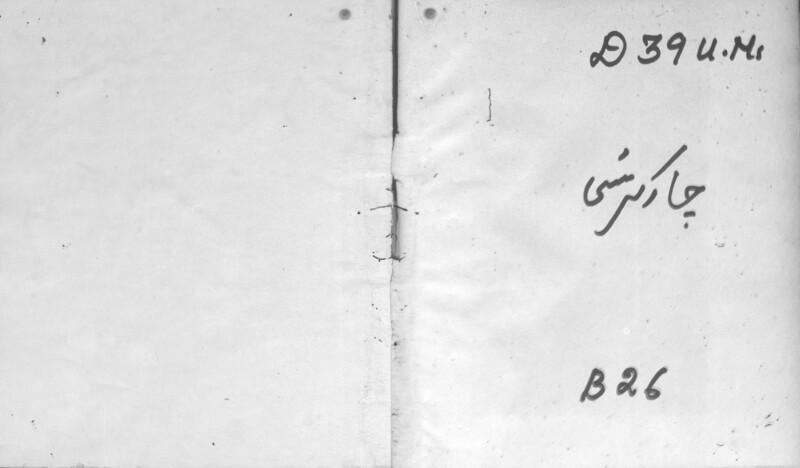 D 39 U.M.
چار کرسی
B 26